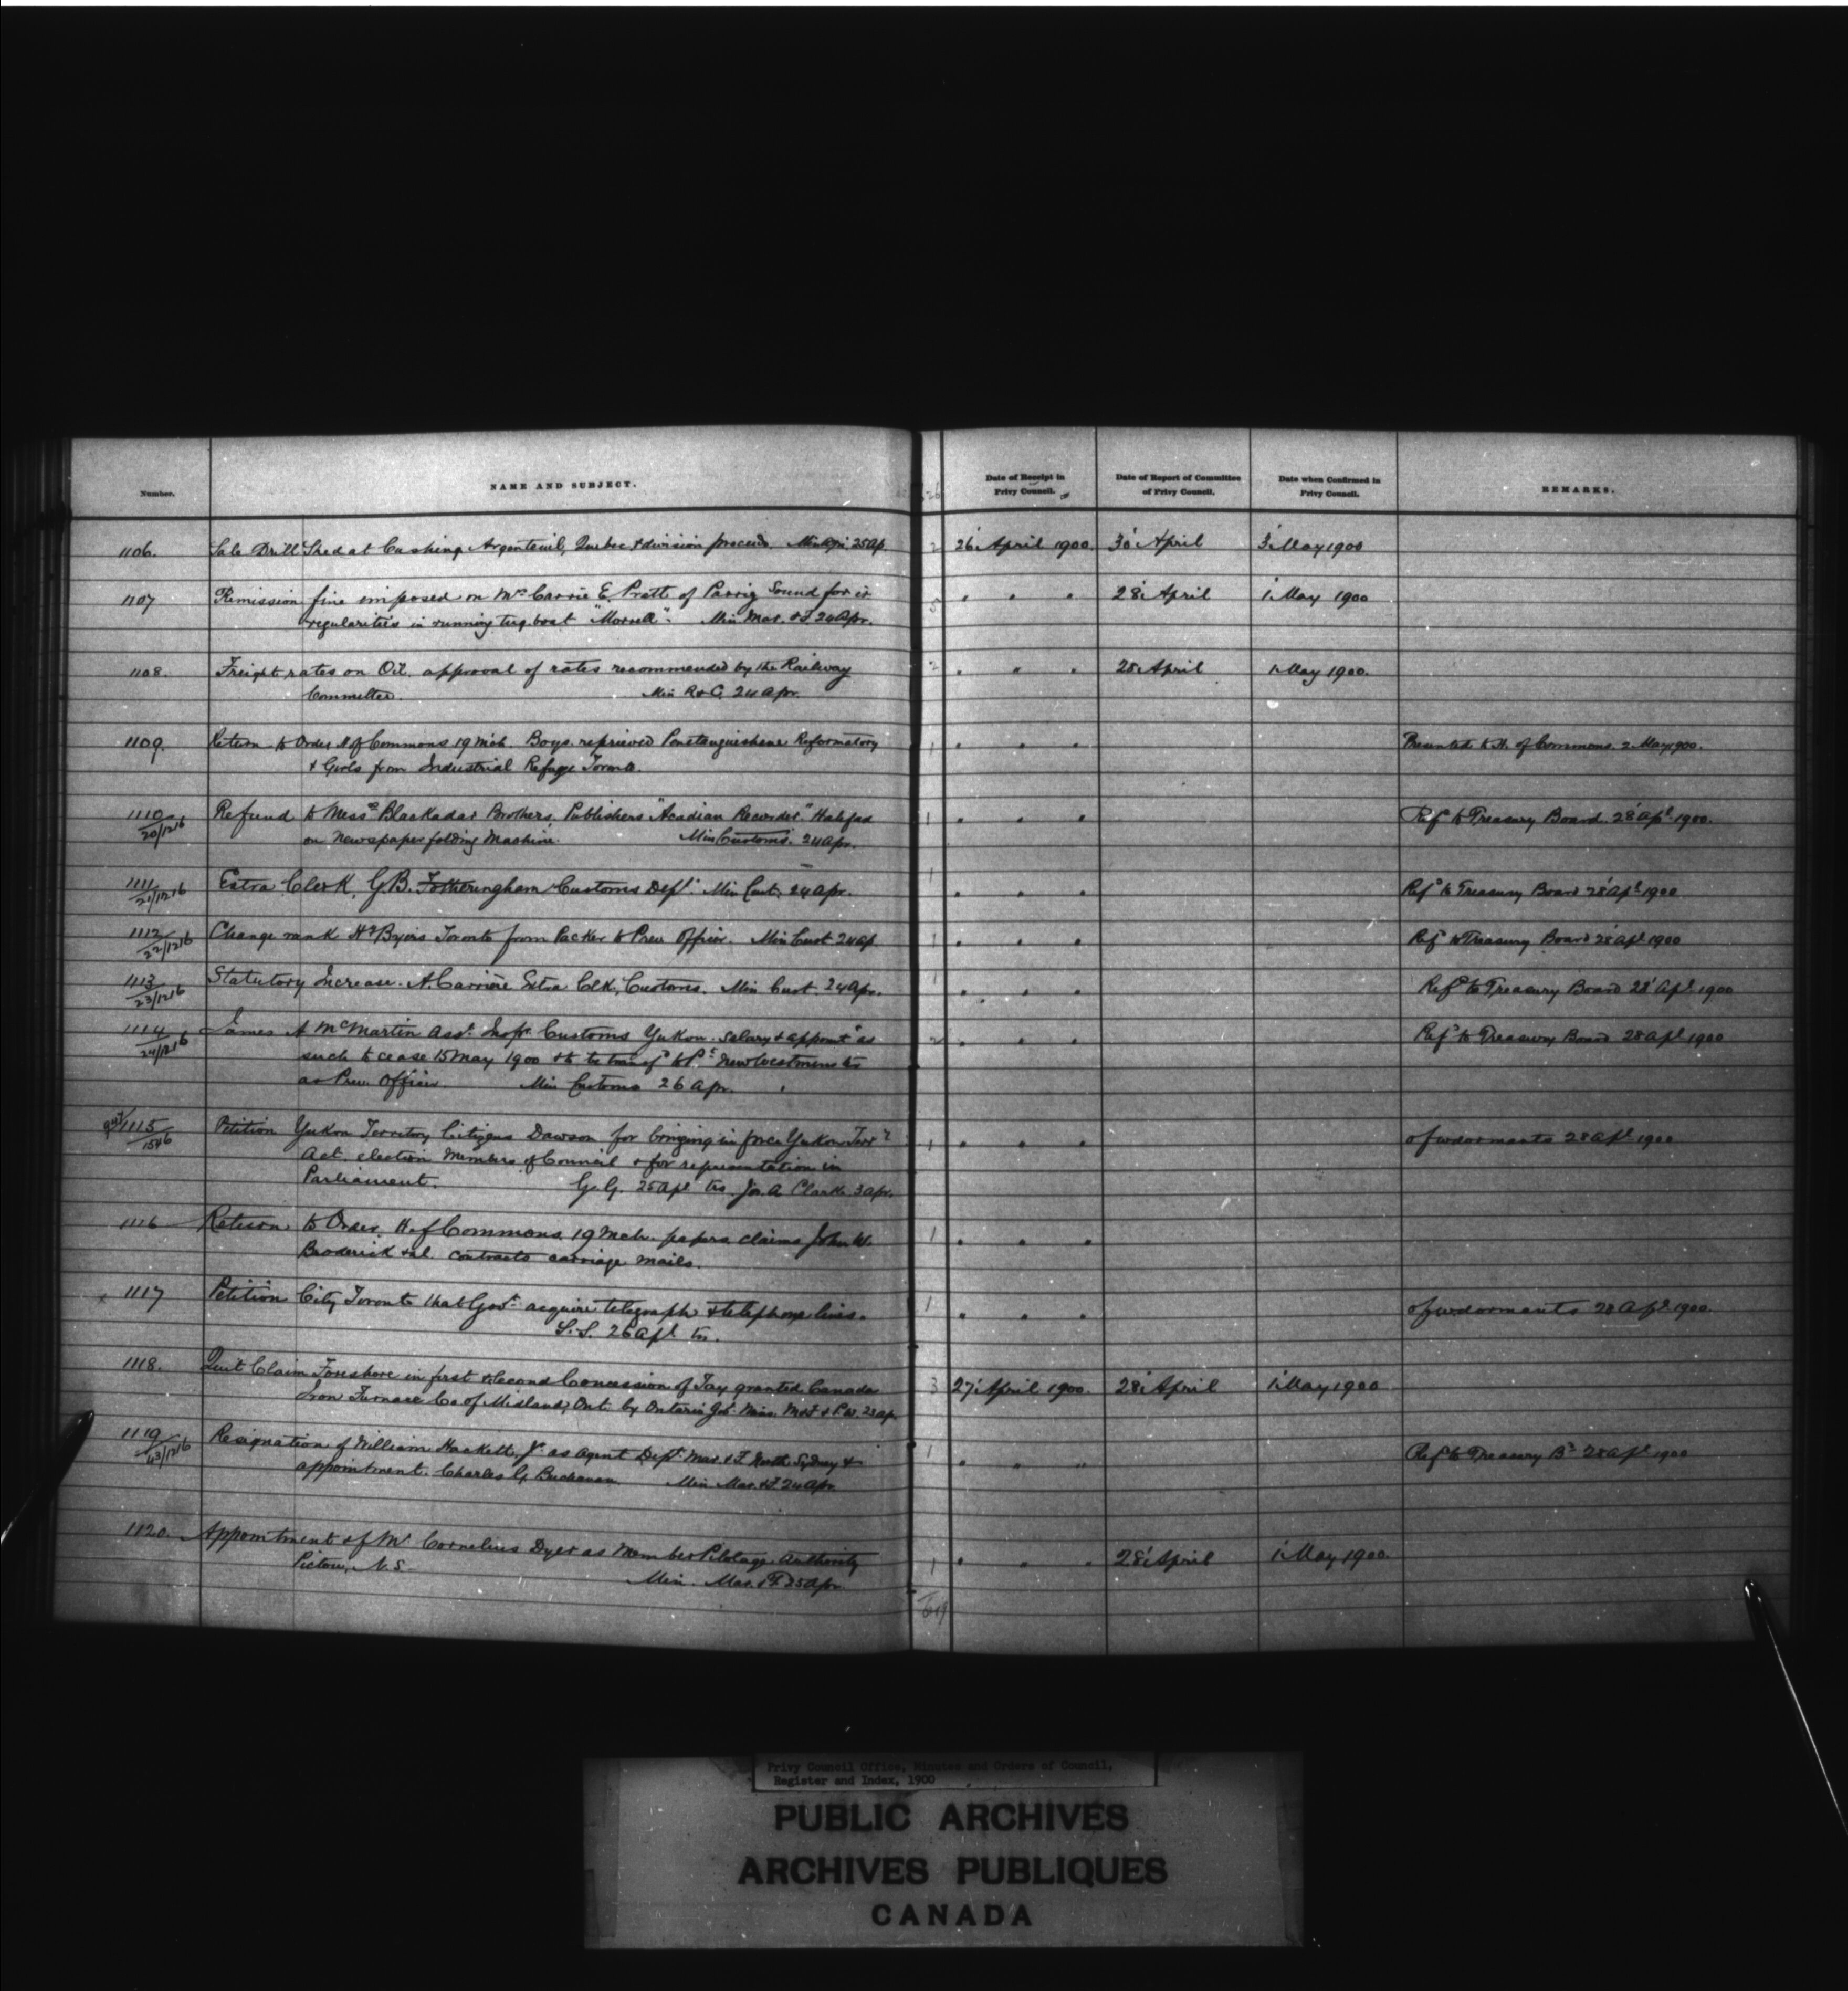 Number.
NAME AND SUBJECT.
Date of Receipt in
Privy Council.
Date of Report of Committee
of Privy Council.
Date when Confirmed in
Privy Council.
REMARKS.
1106. Sale Drill Shed at Cushing Argenteuil, Quebec & division proceeds. 25 Ap. 2 26 April 1900. 30 April 3 May 1900
1107 Remission fine imposed on Mrs Carrie E. Pratt of Parry Sound for ir 5 " " " 28 April 1 May 1900
regularities in running tug boat "Morvell". Min Mar. & F 24 Apr.
1108. Freight rates on Oil, approval of rates recommended by the Railway 2 " " " 28 April 1 May 1900.
Committee. Min R & C. 24 Apr.
1109. Return to Order H of Commons 19 Mch. Boys reprieved Penetanguishene Reformatory 1 " " " Presented to H. of Commons. 2 May 1900.
& Girls from Industrial Refuge Toronto.
1110 Refund to Messrs Blackadar Brothers, Publishers "Acadian Recorder" Halifax 1 " " " Refd to Treasury Board. 28 Apl. 1900.
20/1216 on Newspaper folding Machine. Min Customs. 24 Apr.
1111 Extra Clerk, G B. Fotheringham Customs Dept. Min Cust. 24 Apr. 1 " " " Refd to Treasury Board 28 Apl 1900
21/1216
1112 Change rank Hy Byers Toronto from Packer to Prev Officer. Min Cust 24 Ap. 1 " " " Refd to Treasury Board 28 Apl 1900
22/1216
1113 Statutory Increase. A. Carrière Extra Clk, Customs. Min Cust. 24 Apr. 1 " " " Refd to Treasury Board 28 Apl 1900
23/1216
1114 James A McMartin Asst. Inspr Customs Yukon. Salary & appoint as 2 " " " Refd to Treasury Board 28 Apl 1900
24/1216 such to cease 15 May 1900 & to be transfd to Pt New Westminster
as Prev. Officer Min Customs 26 Apr.
1115 Petition Yukon Territory Citizens Dawson for bringing in force Yukon Terry 1 " " " 28 Apl 1900
1546 Act. election Members of Council & for representation in
Parliament. G. G. 25 Apl trs Jos. A Clark 3 Apr.
1116 Return to Order H. of Commons 19 Mch. papers claims John W. 1 " " "
Broderick & al. contracts carriage mails.
1117 Petition City Toronto that Govt acquire telegraph & telephone lines. 1 " " " 28 Apl 1900.
S.S. 26 Apl trs.
1118. Quit Claim Foreshore in first & Second Concession of Tay granted Canada 3 27 April 1900. 28 April 1 May 1900
Iron Furnace Co of Midland, Ont. by Ontario Govt Mins. M & F & P W. 23 Ap.
1119 Resignation of William Hackett, Jr as Agent Dept Mar. & F. North Sydney & 1 " " " Refd to Treasury Bd 28 Apl 1900
43/1216 appointment. Charles G. Buchanan Min Mar. & F 24 Apr.
1120. Appointment of Mr Cornelius Dyer as Member Pilotage Authority 1 " " " 28 April 1 May 1900.
Pictou, N.S. Min. Mar. & F 25 Apr.
Privy Council Office, Minutes and Orders of Council,
Register and Index, 1900
PUBLIC ARCHIVES
ARCHIVES PUBLIQUES
CANADA